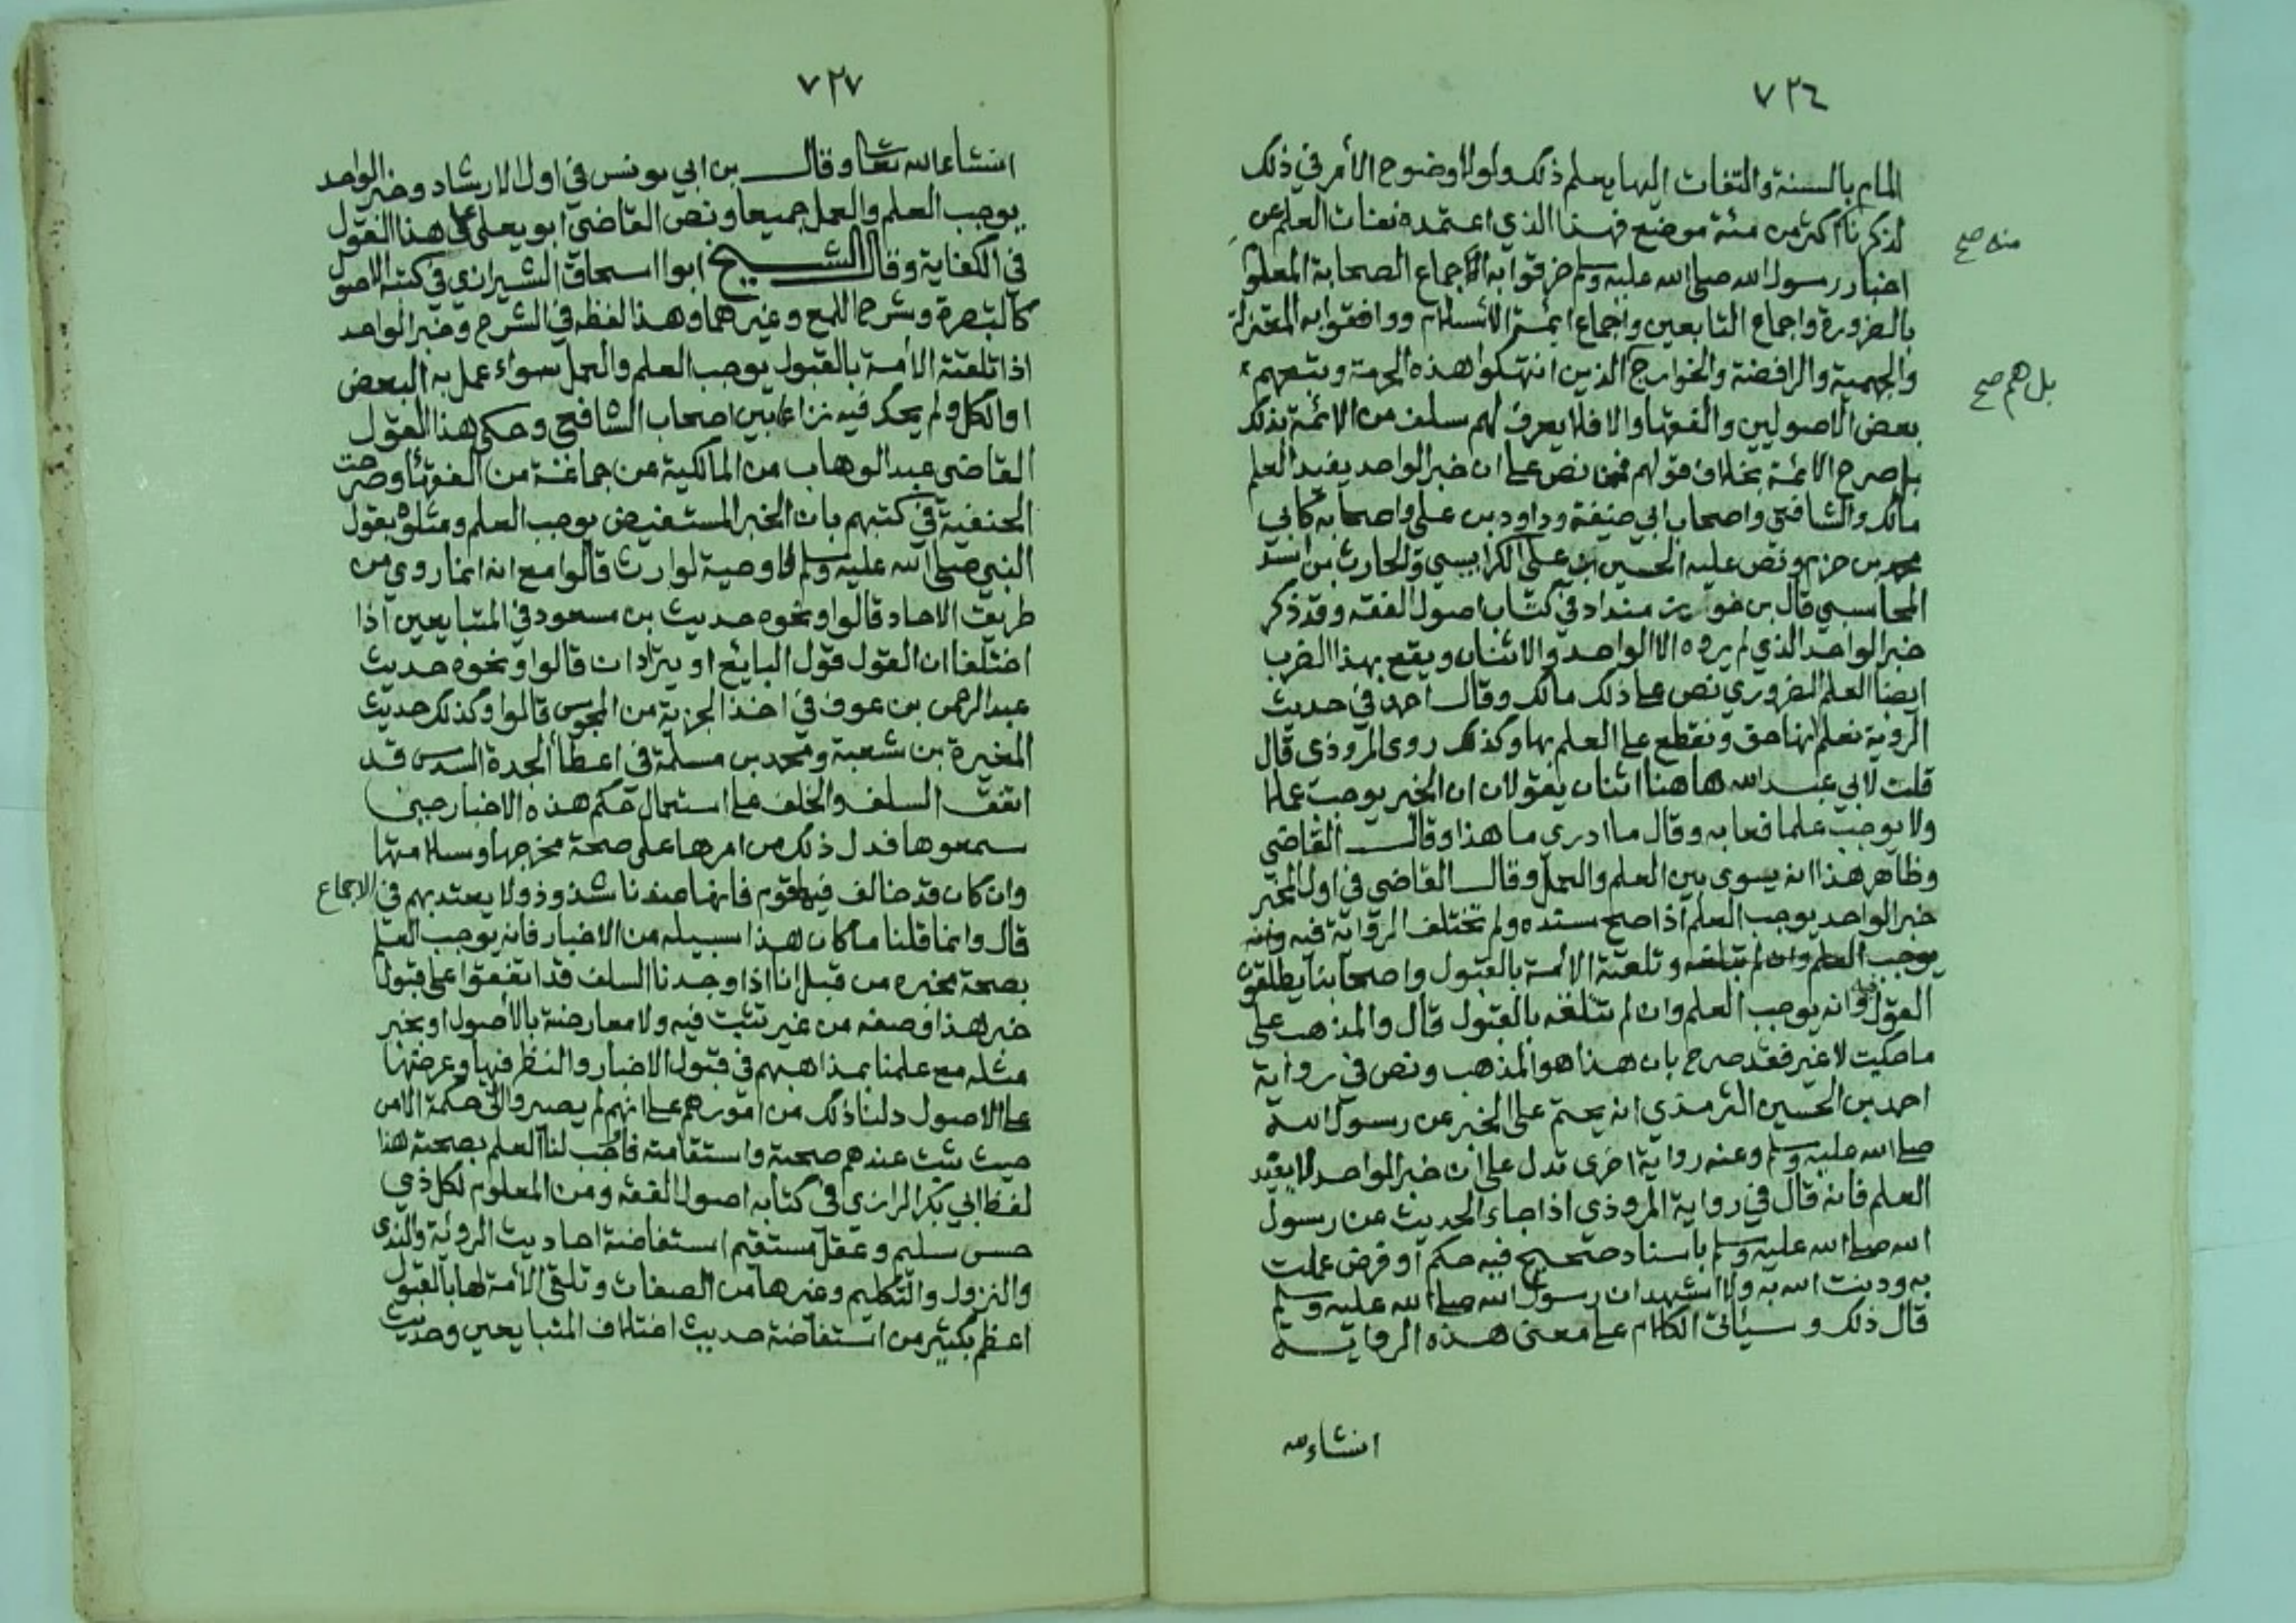 ٧٢٦
المام بالسنة والتفات اليها يعلم ذلك ولولا وضوح الأمر في ذلك
لذكرنا اكثر من مئة موضع فهذا الذي اعتمده نفات العلم عن
منه صح
اخبار رسول الله صلى الله عليه وسلم خرقوا به الاجماع الصحابة المعلوم
بالضرورة واجماع التابعين واجماع ايمة الأسلام ووافقوا به المعتزلة
والجهمية والرافضة والخوارج الذين انتهكوا هذه الحرمة وتبعهم
بل هم صح
بعض الاصوليين والفقها والا فلا يعرف لهم سلف من الائمة بذلك
بل صرح الائمة بخلاف قولهم فممن نص على ان خبر الواحد يفيد العلم
مالك والشافعي واصحاب ابي حنيفة وداود بن علي واصحابه كابي
محمد بن حزم ونص عليه الحسين بن علي الكرابيسي والحارث بن اسد
المحاسبي قال بن خويز منداد في كتاب اصول الفقه وقد ذكر
خبر الواحد الذي لم يروه الا الواحد والاثنان ويقع بهذا الضرب
ايضا العلم الضروري نص على ذلك مالك وقال احمد في حديث
الروية نعلم انها حق ونقطع على العلم بها وكذلك روى المروذى قال
قلت لابي عبد الله ها هنا اثنان يقولان ان الخبر يوجب عملا
ولا يوجب علما فعابه وقال ما ادري ما هذا وقال القاضي
وظاهر هذا انه يسوى بين العلم والعمل وقال القاضي في اول المخبر
خبر الواحد يوجب العلم اذا صح سنده ولم تختلف الرواية فيه وانه
يوجب العلم وان لم تتلقه وتلقته الأمة بالقبول واصحابنا يطلقون
القول فيه وانه يوجب العلم وان لم تتلقه بالقبول قال والمذهب على
ما حكيت لا غير فقد صرح بان هذا هو المذهب ونص في رواية
احمد بن الحسين الترمذي انه يحتم على الخبر عن رسول الله
صلى الله عليه وسلم وعنه رواية اخرى تدل على ان خبر الواحد لا يفيد
العلم فانه قال في رواية المروذي اذا جاء الحديث عن رسول
الله صلى الله عليه وسلم باسناد صحيح فيه حكم او فرض عملت
به ودينت الله به ولا اشهد ان رسول الله صلى الله عليه وسلم
قال ذلك وسيأتي الكلام على معنى هذه الرواية
انشاء الله
٧٢٧
انشاء الله تعا وقال بن ابي يونس في اول الارشاد وخبر الواحد
يوجب العلم والعمل جميعا ونص القاضي ابو يعلى على هذا القول
في الكفاية وقال الشيخ ابوا اسحاق الشيرازي في كتبه الاصول
كالتبصرة وشرح اللمع وغيرهما وهذا لفظه في الشرح وخبر الواحد
اذا تلقته الامة بالقبول يوجب العلم والعمل سواء عمل به البعض
او الكل ولم يحك فيه نزاعا بين اصحاب الشافعي وحكى هذا القول
القاضي عبد الوهاب من المالكية عن جماعة من الفقهاء وصرحت
الحنفية في كتبهم بان الخبر المستفيض يوجب العلم ومثلوه بقول
النبي صلى الله عليه وسلم لا وصية لوارث قالوا مع انه انما روي من
طريق الاحاد قالوا ونحوه حديث بن مسعود في المتبايعين اذا
اختلفا ان القول قول البايع او يترادان قالوا ونحوه حديث
عبد الرحمن بن عوف في اخذ الجزية من المجوس قالوا وكذلك حديث
المغيرة بن شعبة ومحمد بن مسلمة في اعطا الجدة السدس قد
اتفق السلف والخلف على استعمال حكم هذه الاخبار حين
سمعوها فدل ذلك من امرها على صحة مخرجها وسلامتها
وان كان قد خالف فيها قوم فانها عندنا شذوذ ولا يعتد بهم في الاجماع
قال وانما قلنا ما كان هذا سبيله من الاخبار فانه يوجب العلم
بصحة مخبره من قبل انا اذا وجدنا السلف قد اتفقوا على قبول
خبر هذا وصفه من غير تثبت فيه ولا معارضة بالأصول او بخبر
مثله مع علمنا بمذاهبهم في قبول الاخبار والنظر فيها وعرضها
على الاصول دلنا ذلك من امورهم على انهم لم يصيروا الى حكمة الا من
حيث ثبت عندهم صحته واستقامته فاوجب لنا العلم بصحته هذا
لفظ ابي بكر الرازي في كتابه اصول الفقه ومن المعلوم لكل ذي
حس سليم وعقل مستقيم استفاضة احاديث الروية والندى
والنزول والتكليم وغيرها من الصفات وتلقى الأمة لها بالقبول
اعظم بكثير من استفاضة حديث اختلاف المتبايعين وحديث